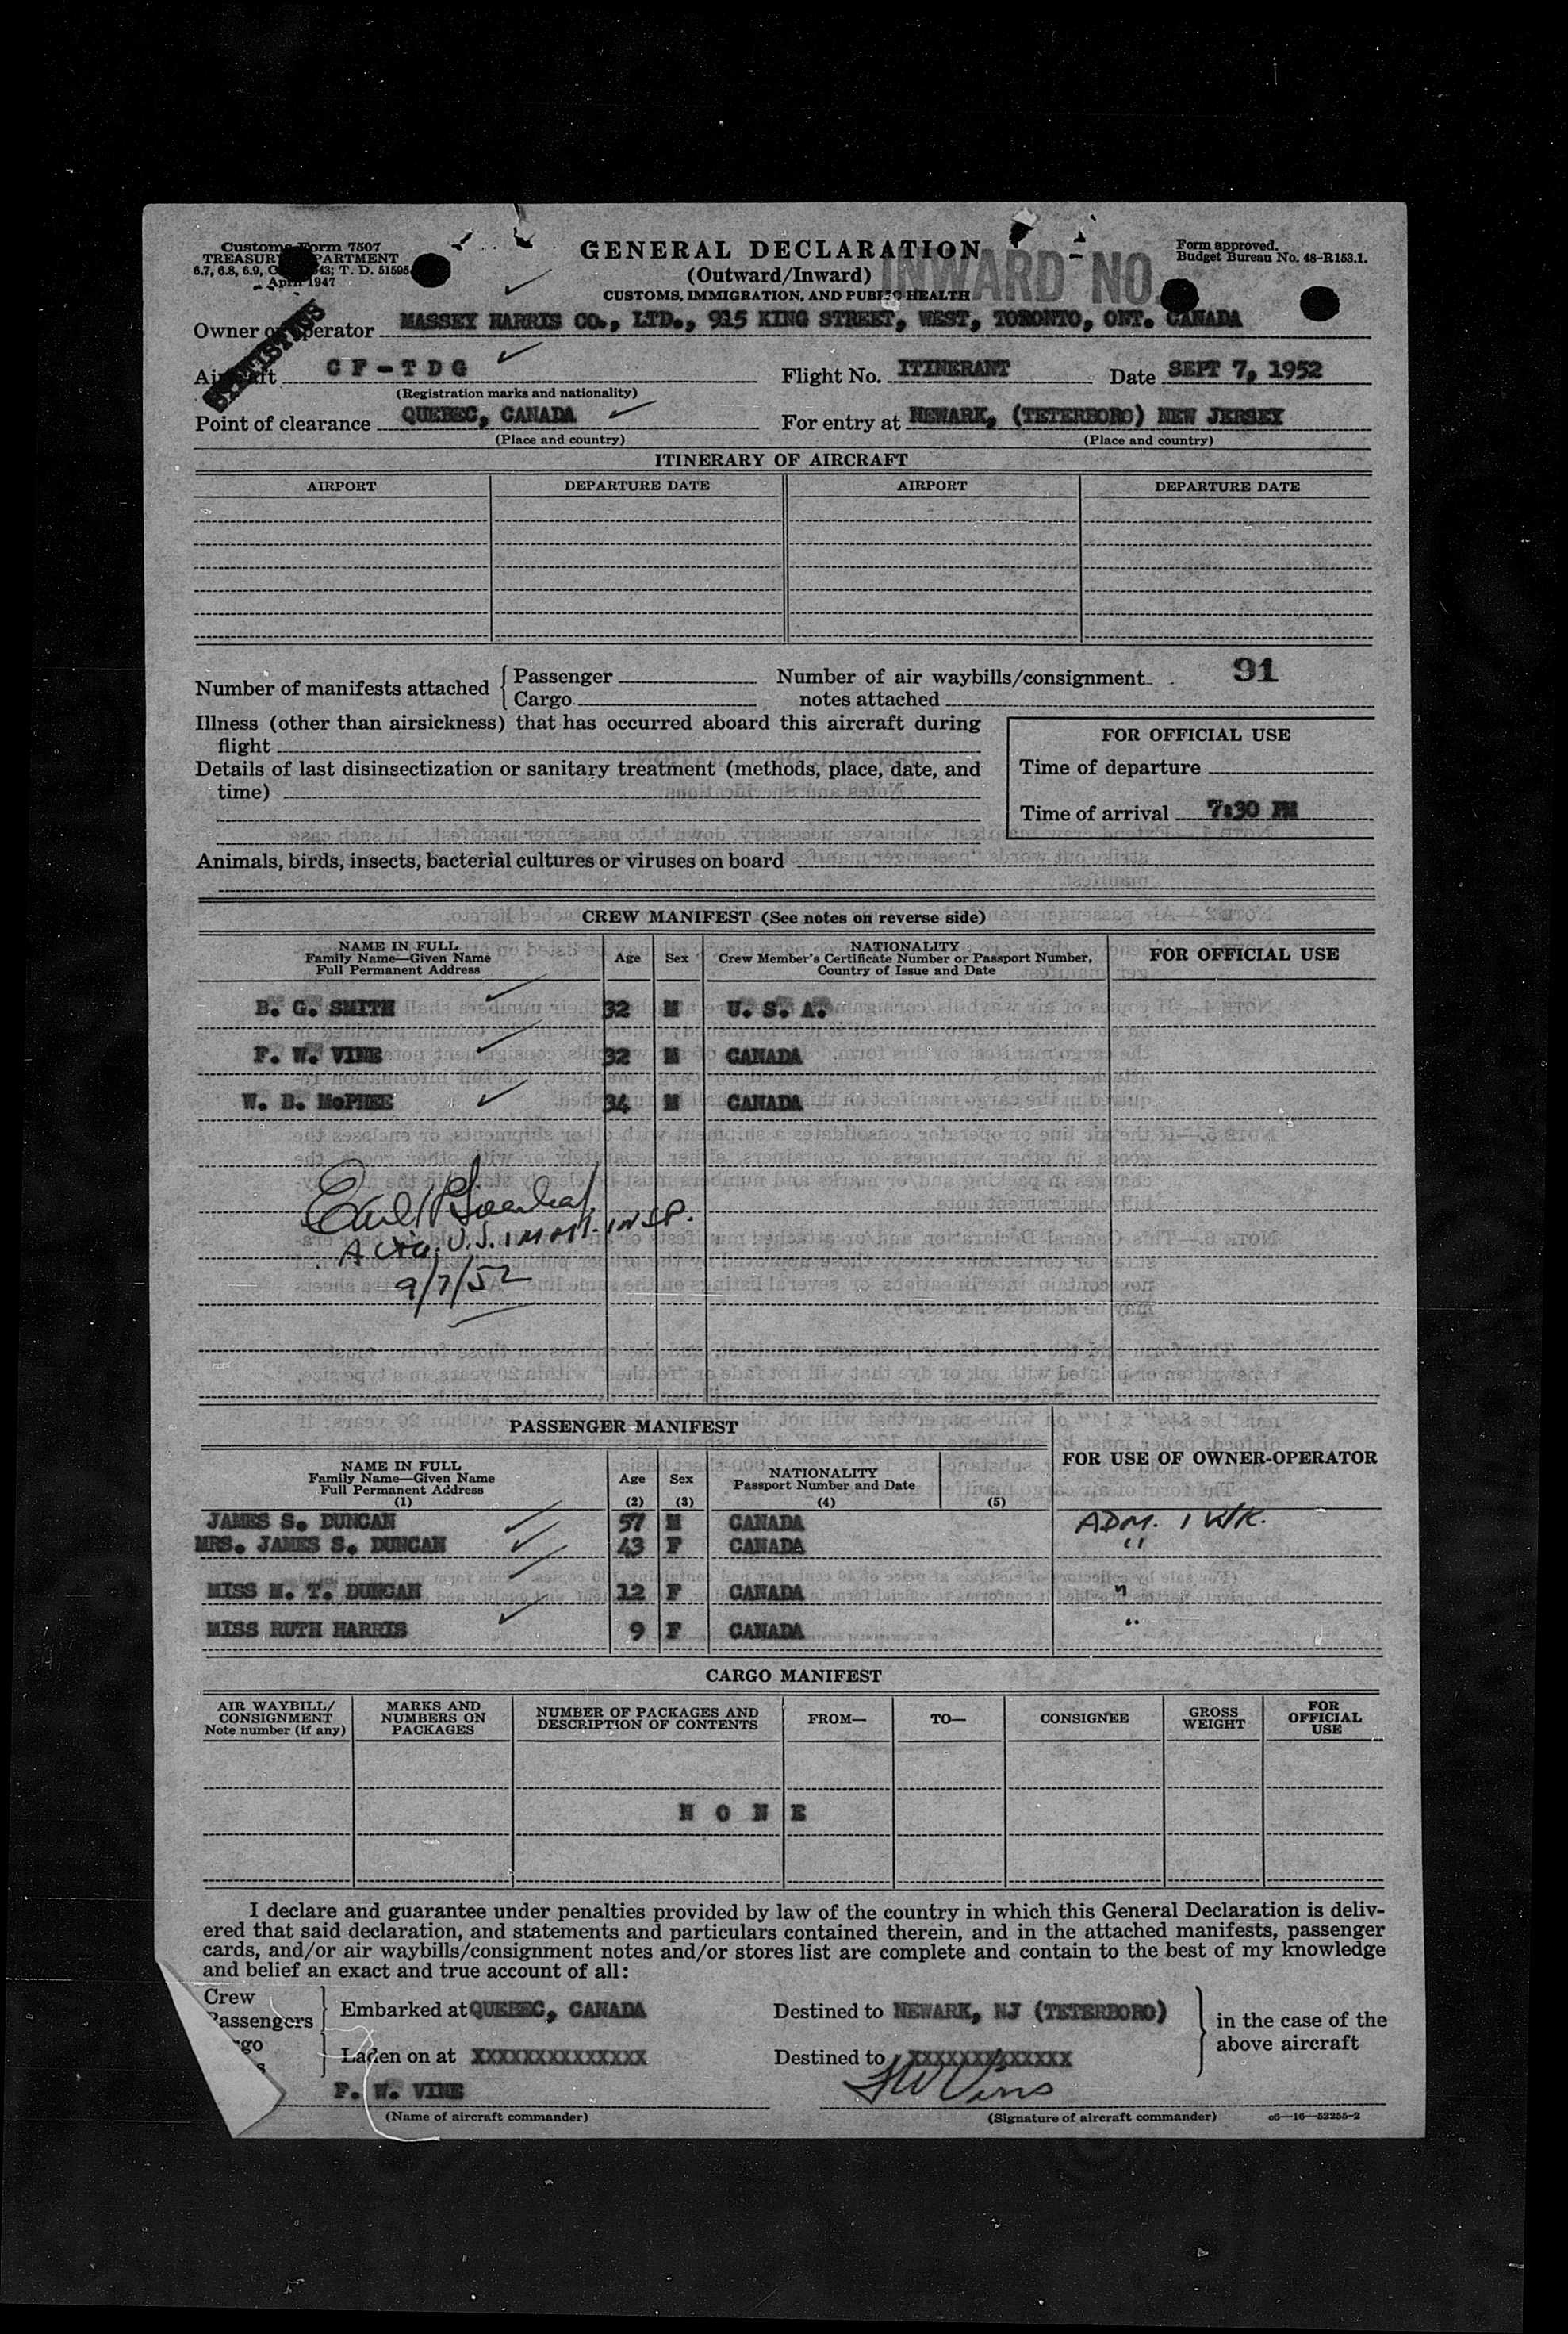 Customs Form 7507
TREASURY DEPARTMENT
6.7, 6.8, 6.9, 43; T. D. 51595
April 1947
GENERAL DECLARATION
(Outward/Inward)
CUSTOMS, IMMIGRATION, AND PUBLIC HEALTH
INWARD NO.
Form approved.
Budget Bureau No. 48-R153.1.
STATISTICS
Owner or Operator MASSEY HARRIS CO., LTD., 915 KING STREET, WEST, TORONTO, ONT. CANADA
Aircraft C F - T D G Flight No. ITINERANT Date SEPT 7, 1952
(Registration marks and nationality)
Point of clearance QUEBEC, CANADA For entry at NEWARK, (TETERBORO) NEW JERSEY
(Place and country) (Place and country)
ITINERARY OF AIRCRAFT
AIRPORT DEPARTURE DATE AIRPORT DEPARTURE DATE
91
Number of manifests attached { Passenger Number of air waybills/consignment
Cargo notes attached
Illness (other than airsickness) that has occurred aboard this aircraft during
flight
Details of last disinsectization or sanitary treatment (methods, place, date, and
time)
FOR OFFICIAL USE
Time of departure
Time of arrival 7:30 PM
Animals, birds, insects, bacterial cultures or viruses on board
CREW MANIFEST (See notes on reverse side)
NAME IN FULL
Family Name—Given Name
Full Permanent Address
Age Sex
NATIONALITY
Crew Member's Certificate Number or Passport Number,
Country of Issue and Date
FOR OFFICIAL USE
B. G. SMITH 32 M U. S. A.
F. W. VINE 32 M CANADA
W. B. McPHEE 34 M CANADA
ACTG. U.S. IMMT. INSP.
9/7/52
PASSENGER MANIFEST
FOR USE OF OWNER-OPERATOR
NAME IN FULL
Family Name—Given Name
Full Permanent Address
(1)
Age
(2)
Sex
(3)
NATIONALITY
Passport Number and Date
(4) (5)
JAMES S. DUNCAN 57 M CANADA ADM. 1 WK.
MRS. JAMES S. DUNCAN 43 F CANADA "
MISS M. T. DUNCAN 12 F CANADA "
MISS RUTH HARRIS 9 F CANADA "
CARGO MANIFEST
AIR WAYBILL/
CONSIGNMENT
Note number (if any)
MARKS AND
NUMBERS ON
PACKAGES
NUMBER OF PACKAGES AND
DESCRIPTION OF CONTENTS
FROM— TO— CONSIGNEE
GROSS
WEIGHT
FOR
OFFICIAL
USE
N O N E
I declare and guarantee under penalties provided by law of the country in which this General Declaration is deliv-
ered that said declaration, and statements and particulars contained therein, and in the attached manifests, passenger
cards, and/or air waybills/consignment notes and/or stores list are complete and contain to the best of my knowledge
and belief an exact and true account of all:
Crew
Passengers
Embarked at QUEBEC, CANADA Destined to NEWARK, NJ (TETERBORO)
in the case of the
above aircraft
Laden on at XXXXXXXXXXXXXX Destined to XXXXXXXXXXXXX
F. W. VINE FW Vine
(Name of aircraft commander) (Signature of aircraft commander) c6—16—52255-2